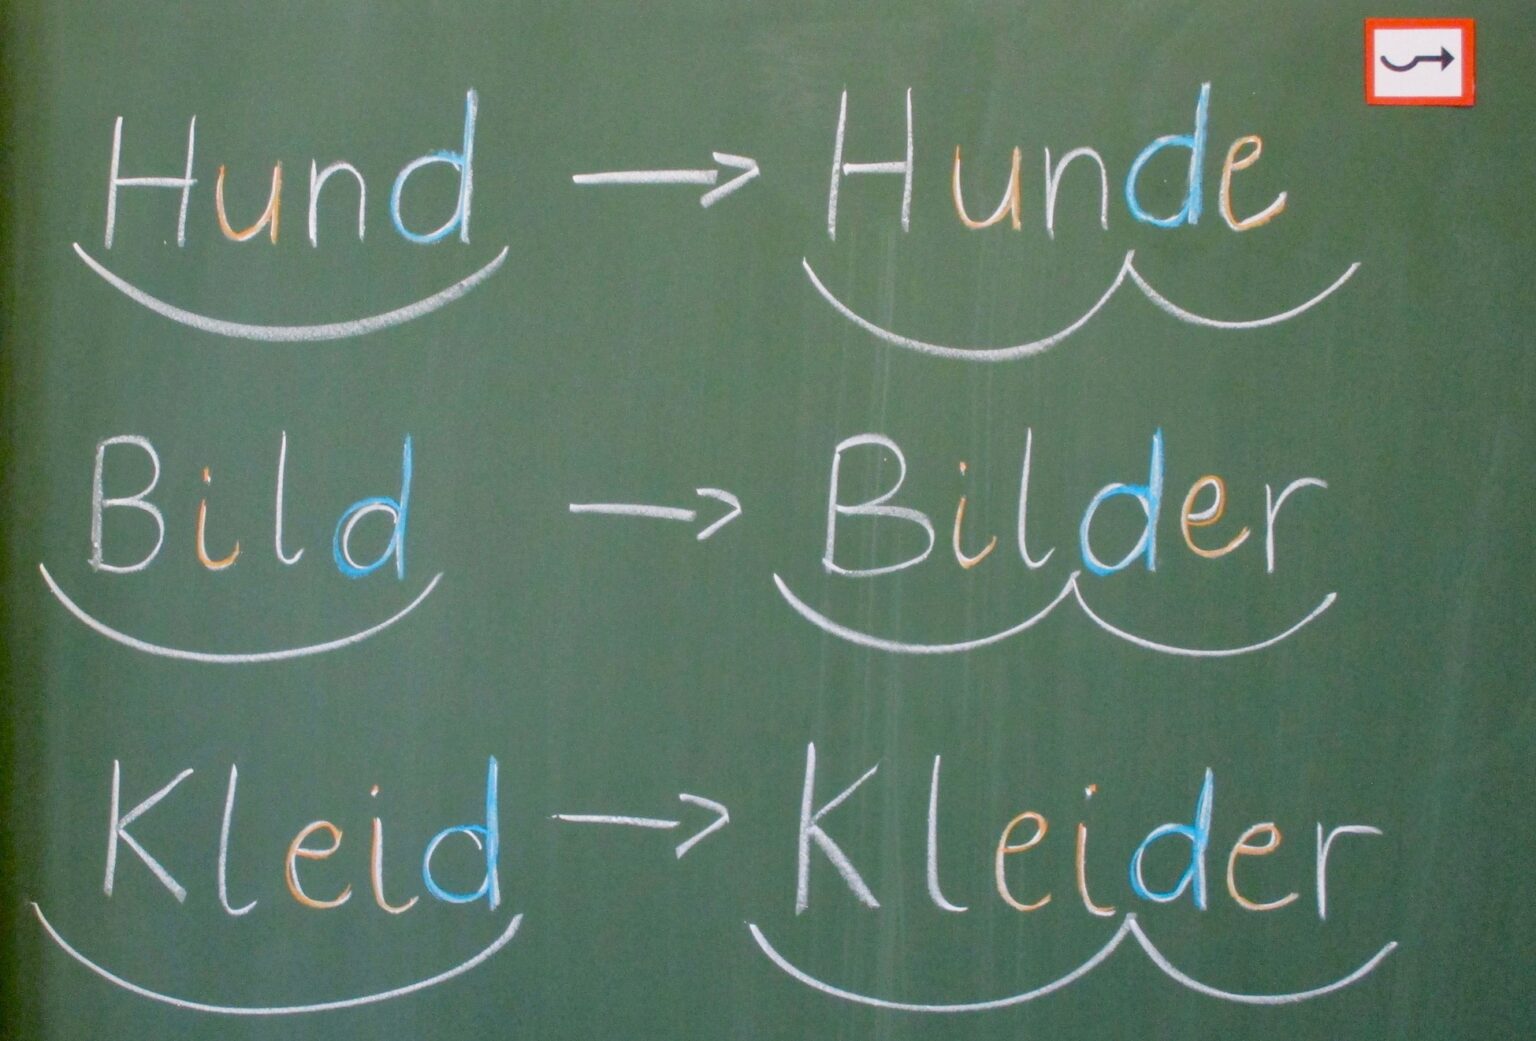 Hund → Hunde
Bild → Bilder
Kleid → Kleider